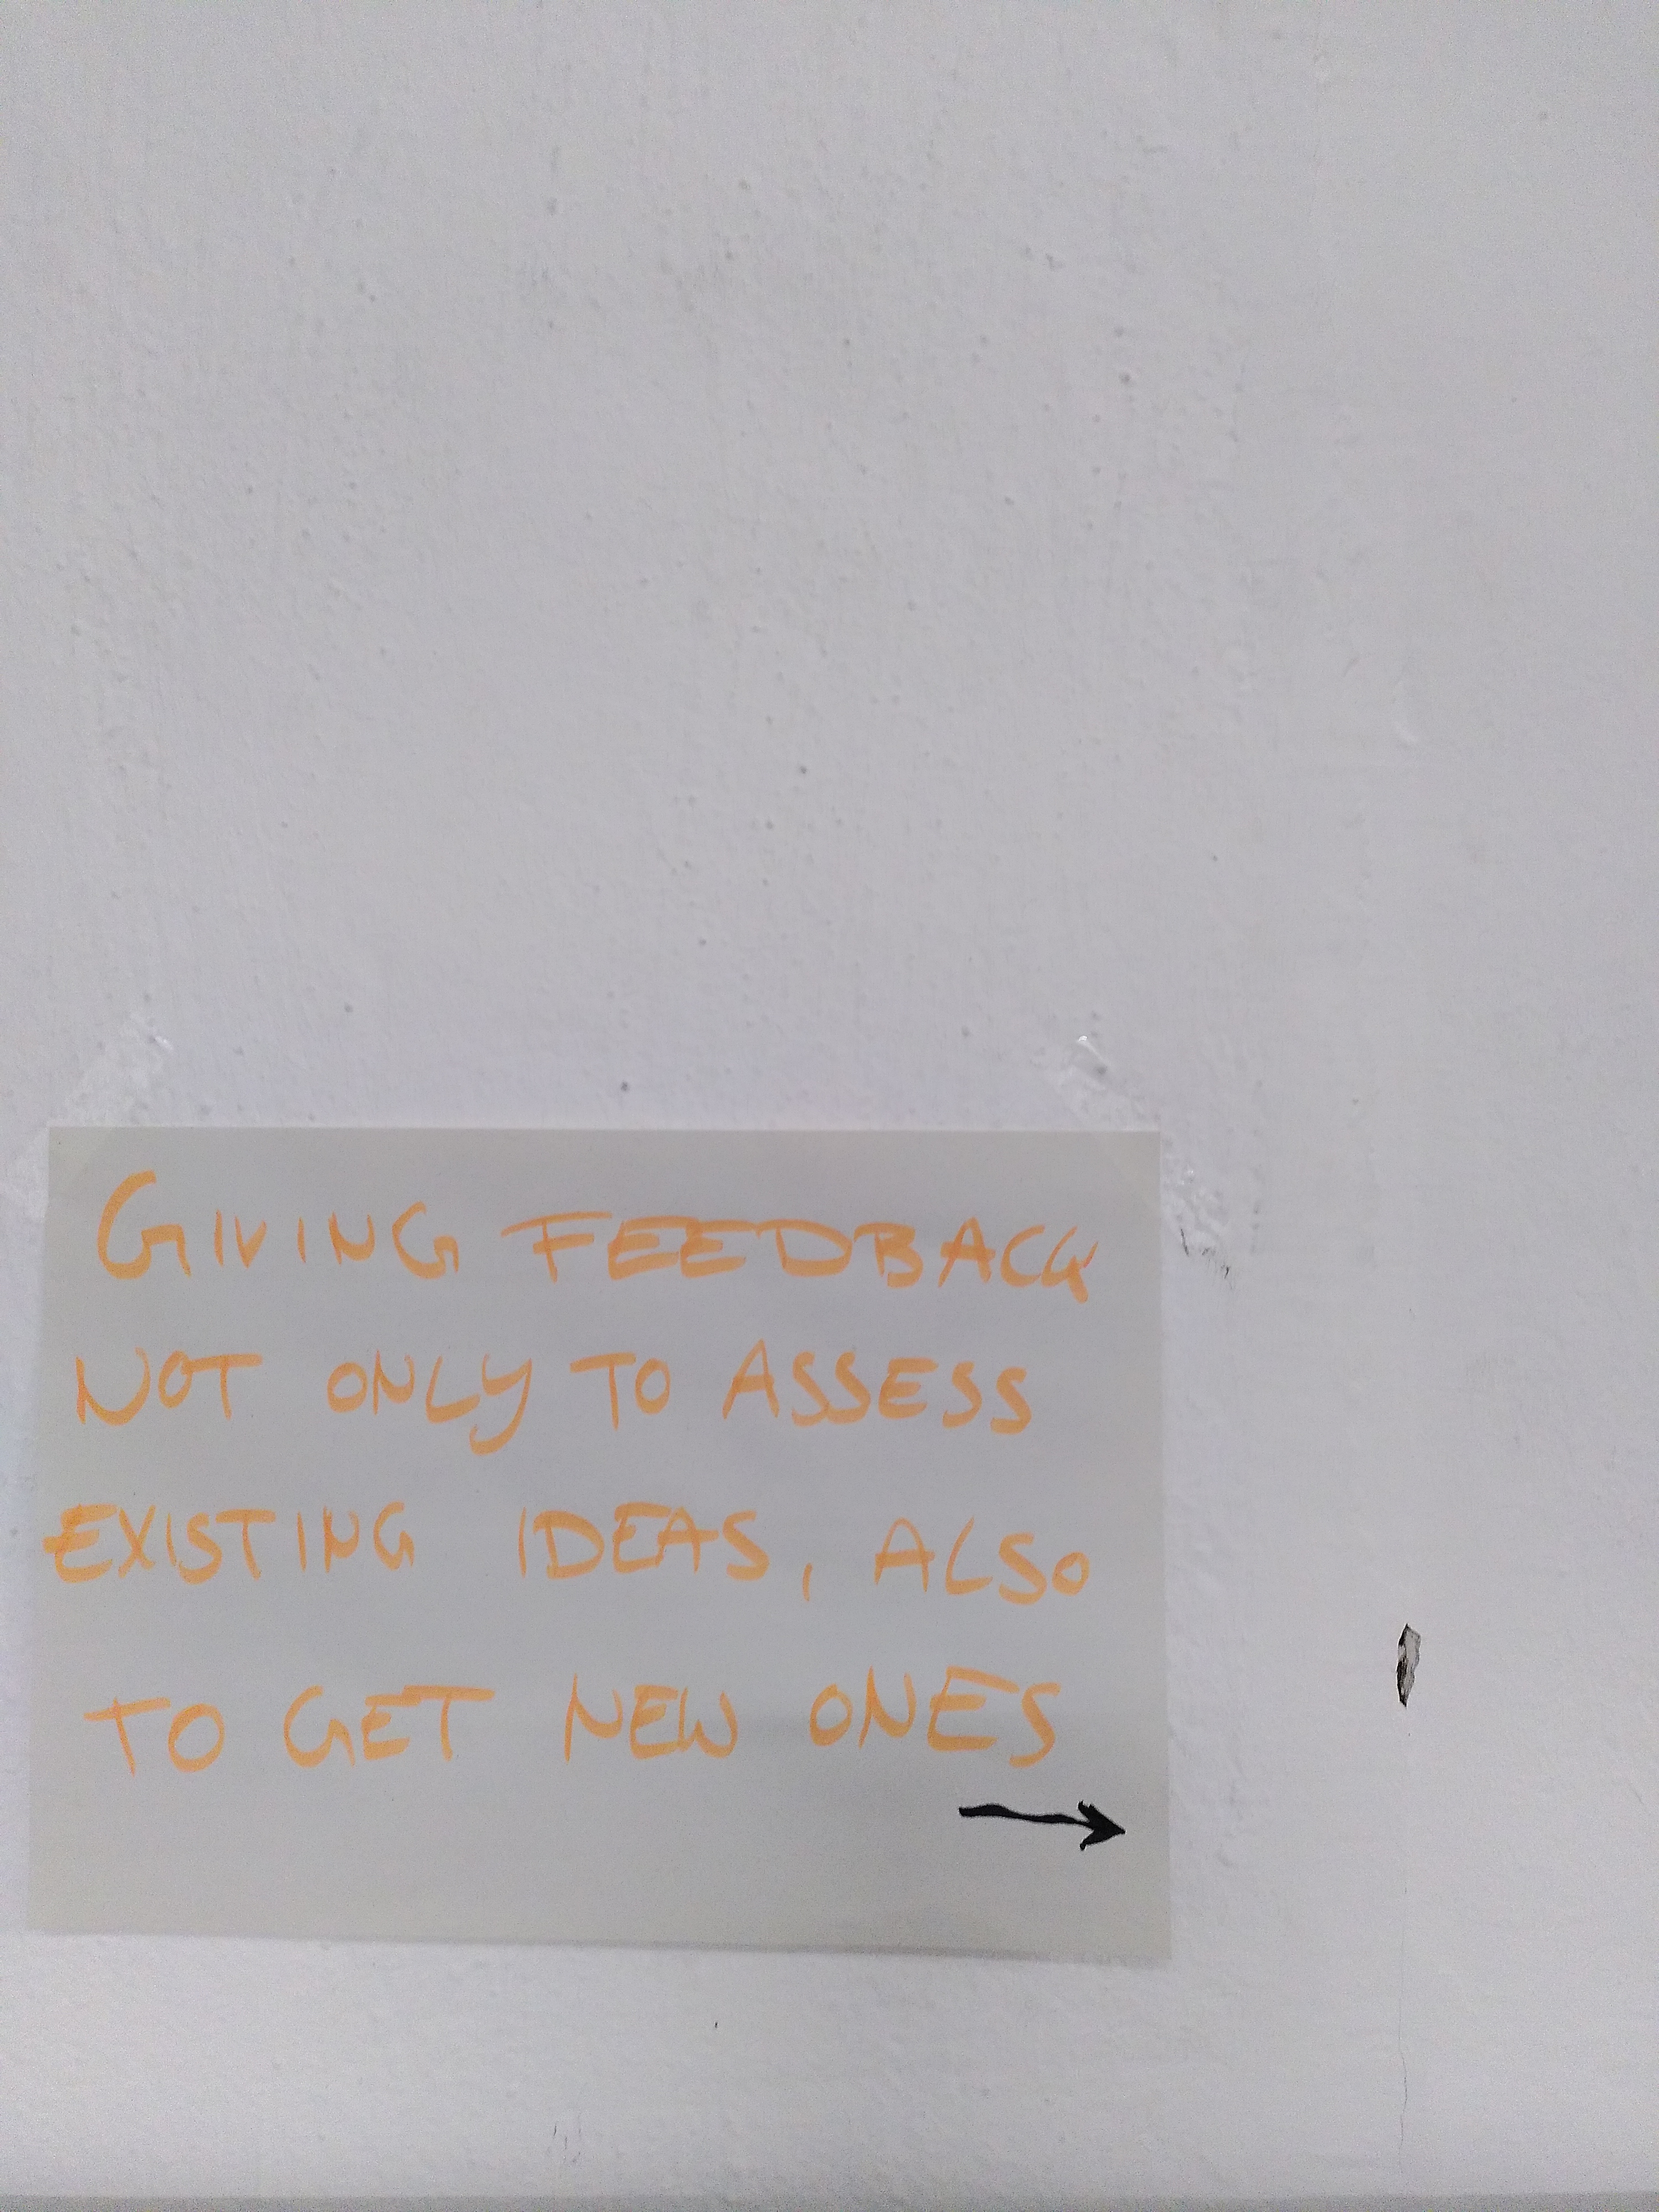 GIVING FEEDBACK
NOT ONLY TO ASSESS
EXISTING IDEAS, ALSO
TO GET NEW ONES
→